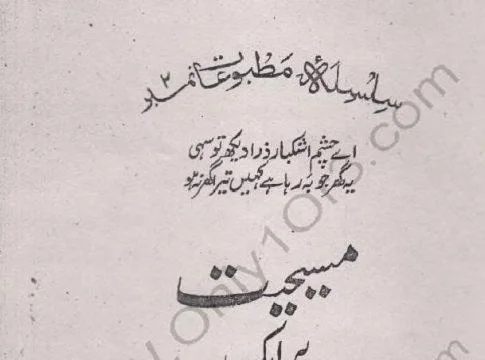 سلسلۂ مطبوعات نمبر ۲
اے چشم اشکبار ذرا دیکھ تو سہی
یہ گھر جو بہہ رہا ہے کہیں تیرا گھر نہ ہو
مسیحیت
Only1Or3.com